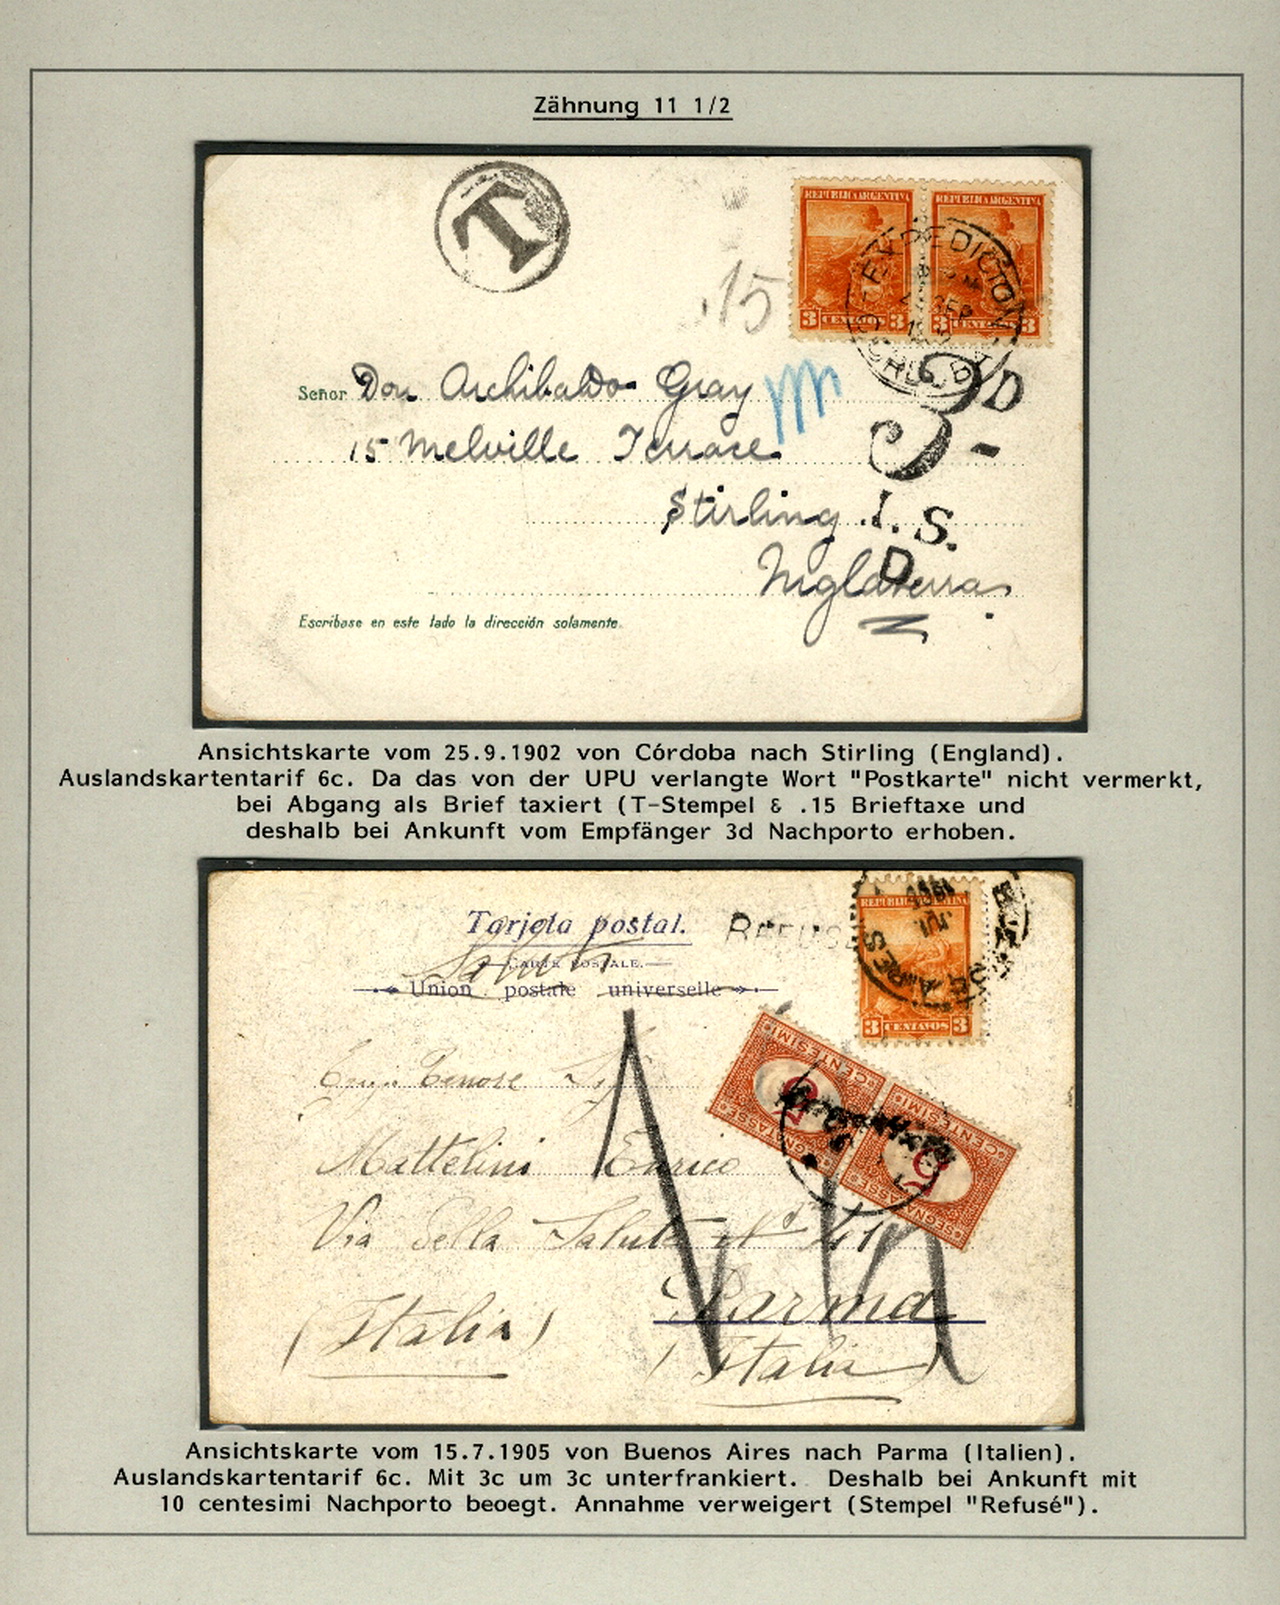 Zähnung 11 1/2
T
REPUBLICA ARGENTINA
REPUBLICA ARGENTINA
3 CENTAVOS 3
3 CENTAVOS 3
EXPEDICION
.15
Señor Don Archibaldo Gray
15 Melville Terrace
Stirling
Inglaterra
3D
3-
I.S.
D
Escríbase en este lado la dirección solamente.
Ansichtskarte vom 25.9.1902 von Córdoba nach Stirling (England).
Auslandskartentarif 6c. Da das von der UPU verlangte Wort "Postkarte" nicht vermerkt,
bei Abgang als Brief taxiert (T-Stempel & .15 Brieftaxe und
deshalb bei Ankunft vom Empfänger 3d Nachporto erhoben.
Tarjeta postal.
REFUSE
CARTE POSTALE.
Union postale universelle
REPUBLICA ARGENTINA
3 CENTAVOS 3
AIRES
JUL
SEGNATASSE
CENTESIMI
SEGNATASSE
CENTESIMI
Tenore
Mattelini Enrico
Via Della Salute Nº 41
Parma
(Italia)
(Italia)
Ansichtskarte vom 15.7.1905 von Buenos Aires nach Parma (Italien).
Auslandskartentarif 6c. Mit 3c um 3c unterfrankiert. Deshalb bei Ankunft mit
10 centesimi Nachporto beoegt. Annahme verweigert (Stempel "Refusé").